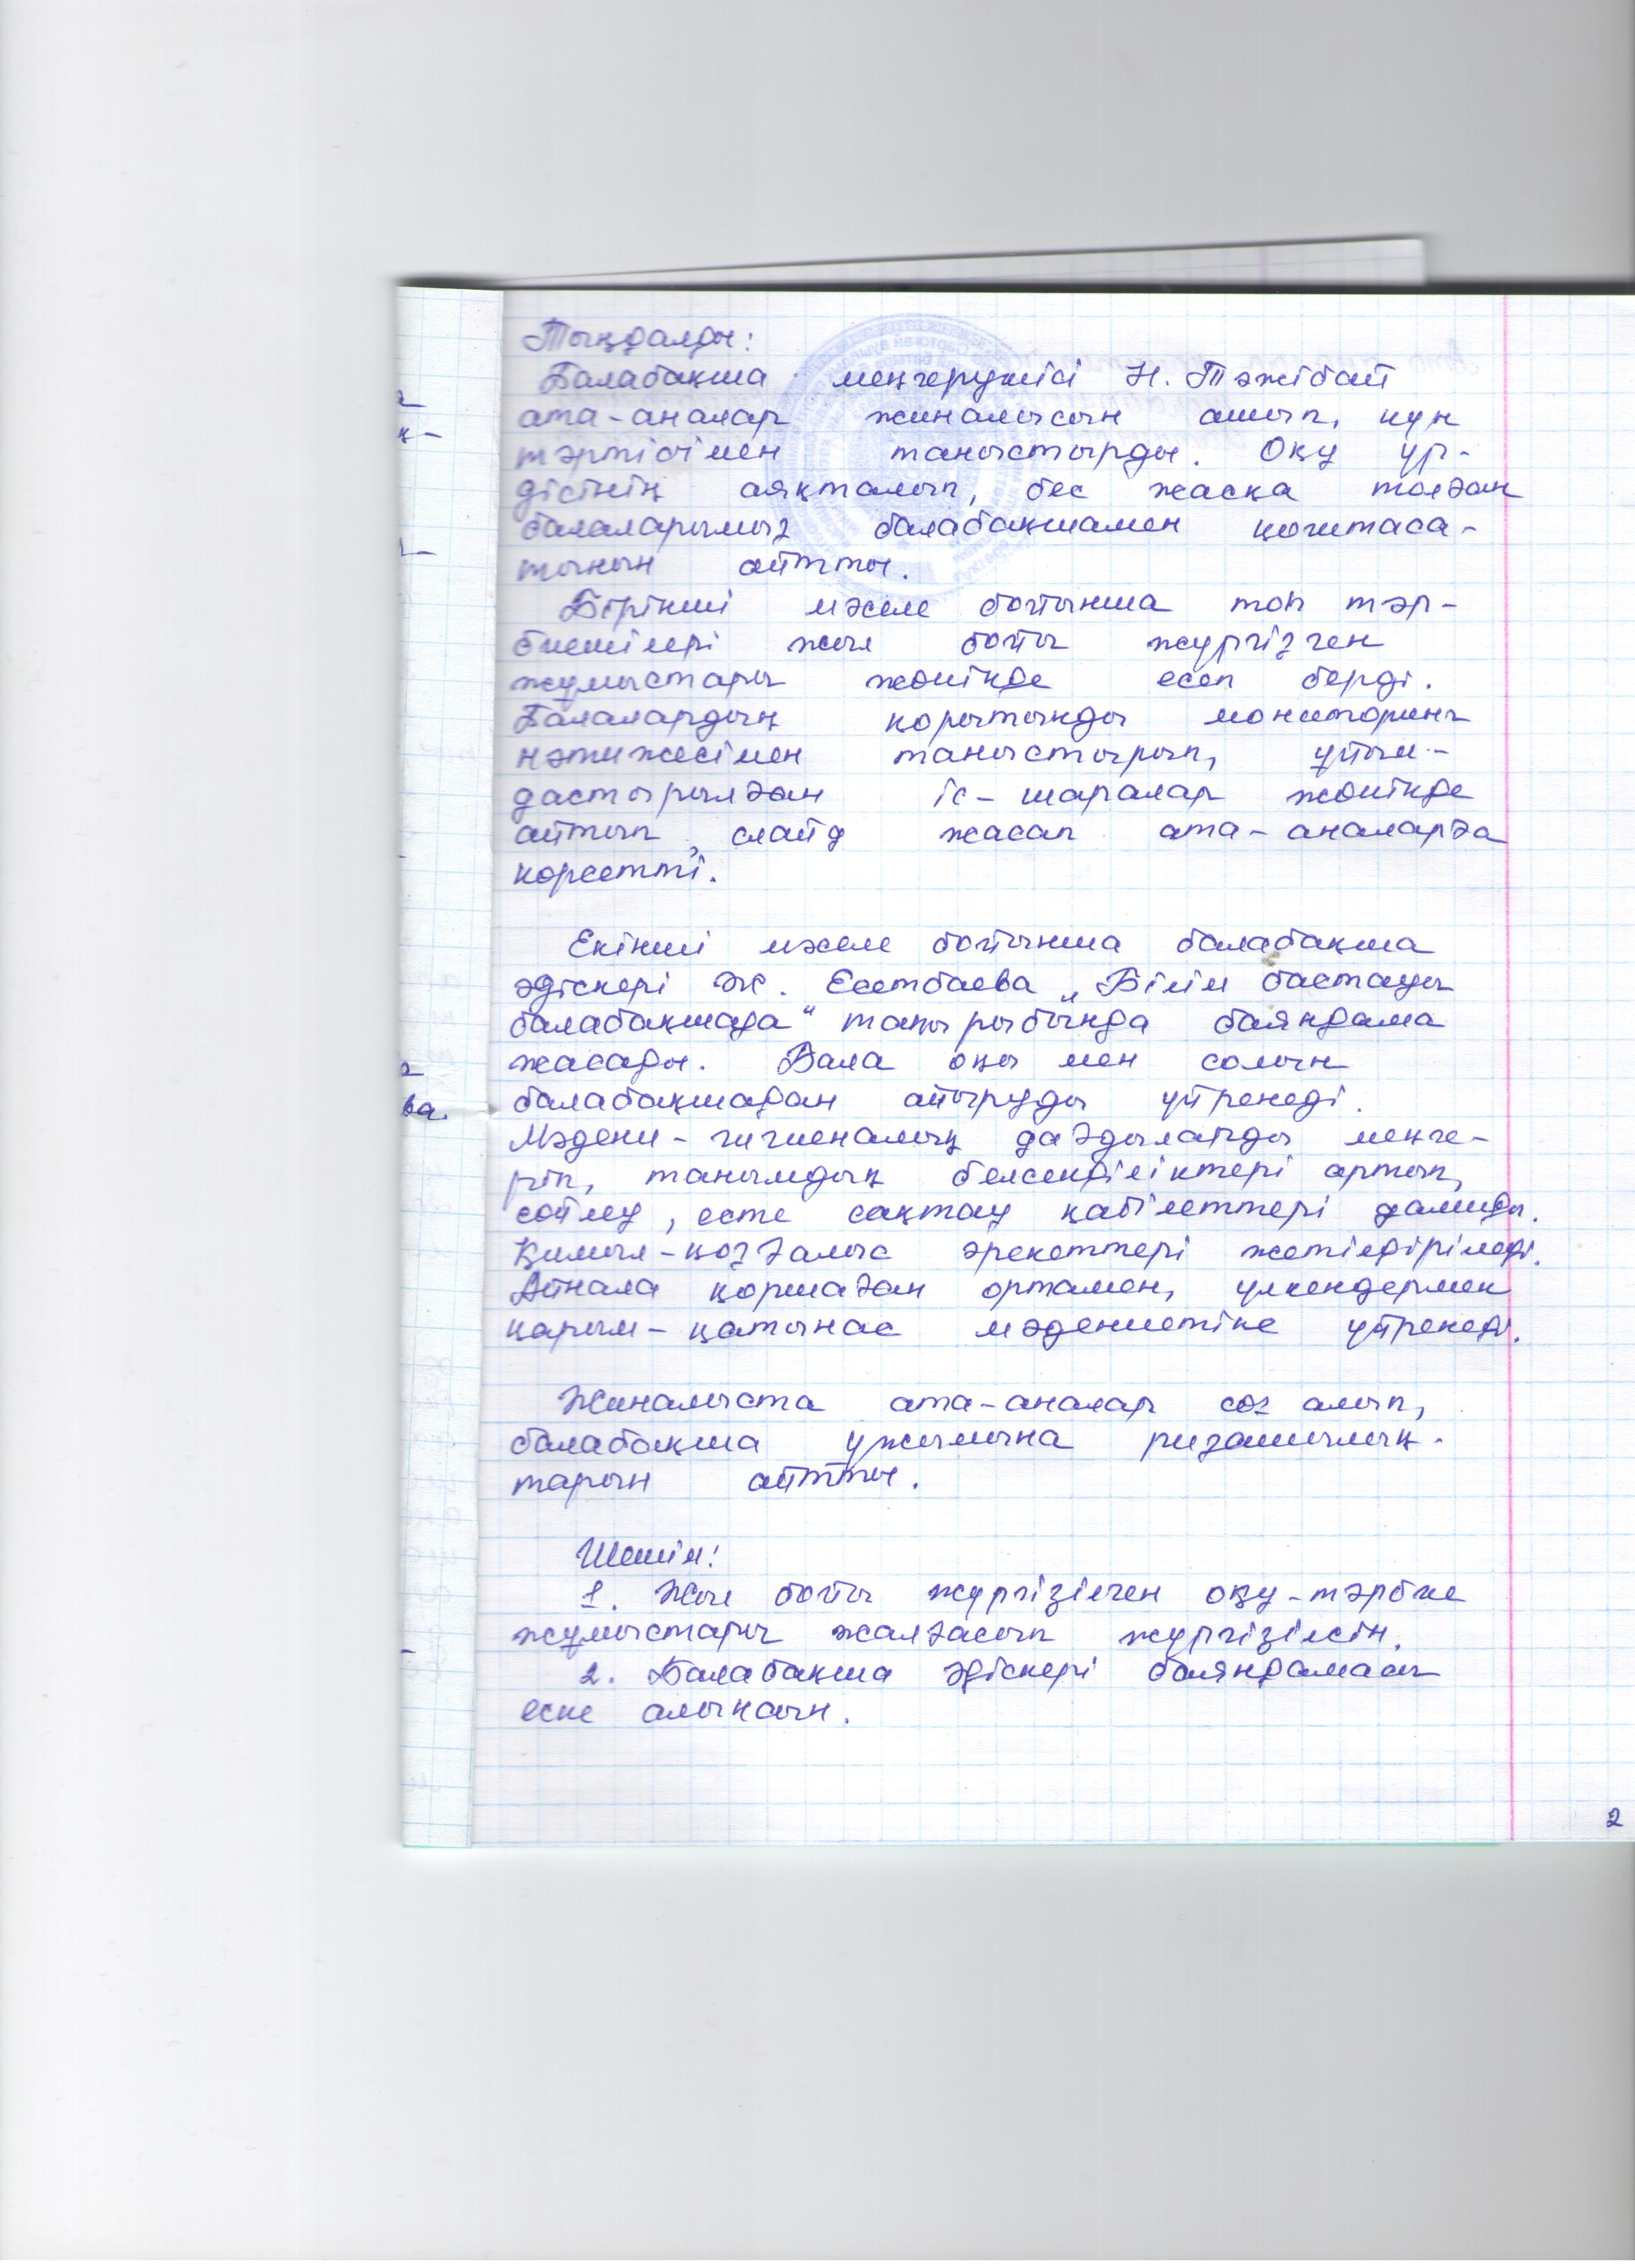 Тыңдалды:
Балабақша меңгерушісі Н. Тәжібай
ата-аналар жиналысын ашып, күн
тәртібімен таныстырды. Оқу үр-
дісінің аяқталып, бес жасқа толған
балаларымыз балабақшамен қоштаса-
тынын айтты.
Бірінші мәселе бойынша топ тәр-
биешілері жыл бойы жүргізген
жұмыстары жөнінде есеп берді.
Балалардың қорытынды мониторинг
нәтижесімен таныстырып, ұйым-
дастырылған іс-шаралар жөнінде
айтып, слайд жасап ата-аналарға
көрсетті.
Екінші мәселе бойынша балабақша
әдіскері Ж. Есетбаева „Білім бастауы
балабақшада" тақырыбында баяндама
жасады. Бала оңы мен солын
балабақшадан айыруды үйренеді.
Мәдени-гигиеналық дағдыларды меңге-
ріп, танымдық белсенділіктері артып,
сөйлеу, есте сақтау қабілеттері дамиды.
Қимыл-қозғалыс әрекеттері жетілдіріледі.
Айнала қоршаған ортамен, үлкендермен
қарым-қатынас мәдениетіне үйренеді.
Жиналыста ата-аналар сөз алып,
балабақша ұжымына ризашылық-
тарын айтты.
Шешім:
1. Жыл бойы жүргізілген оқу-тәрбие
жұмыстары жалғасып жүргізілсін.
2. Балабақша әдіскері баяндамасы
еске алынсын.
2